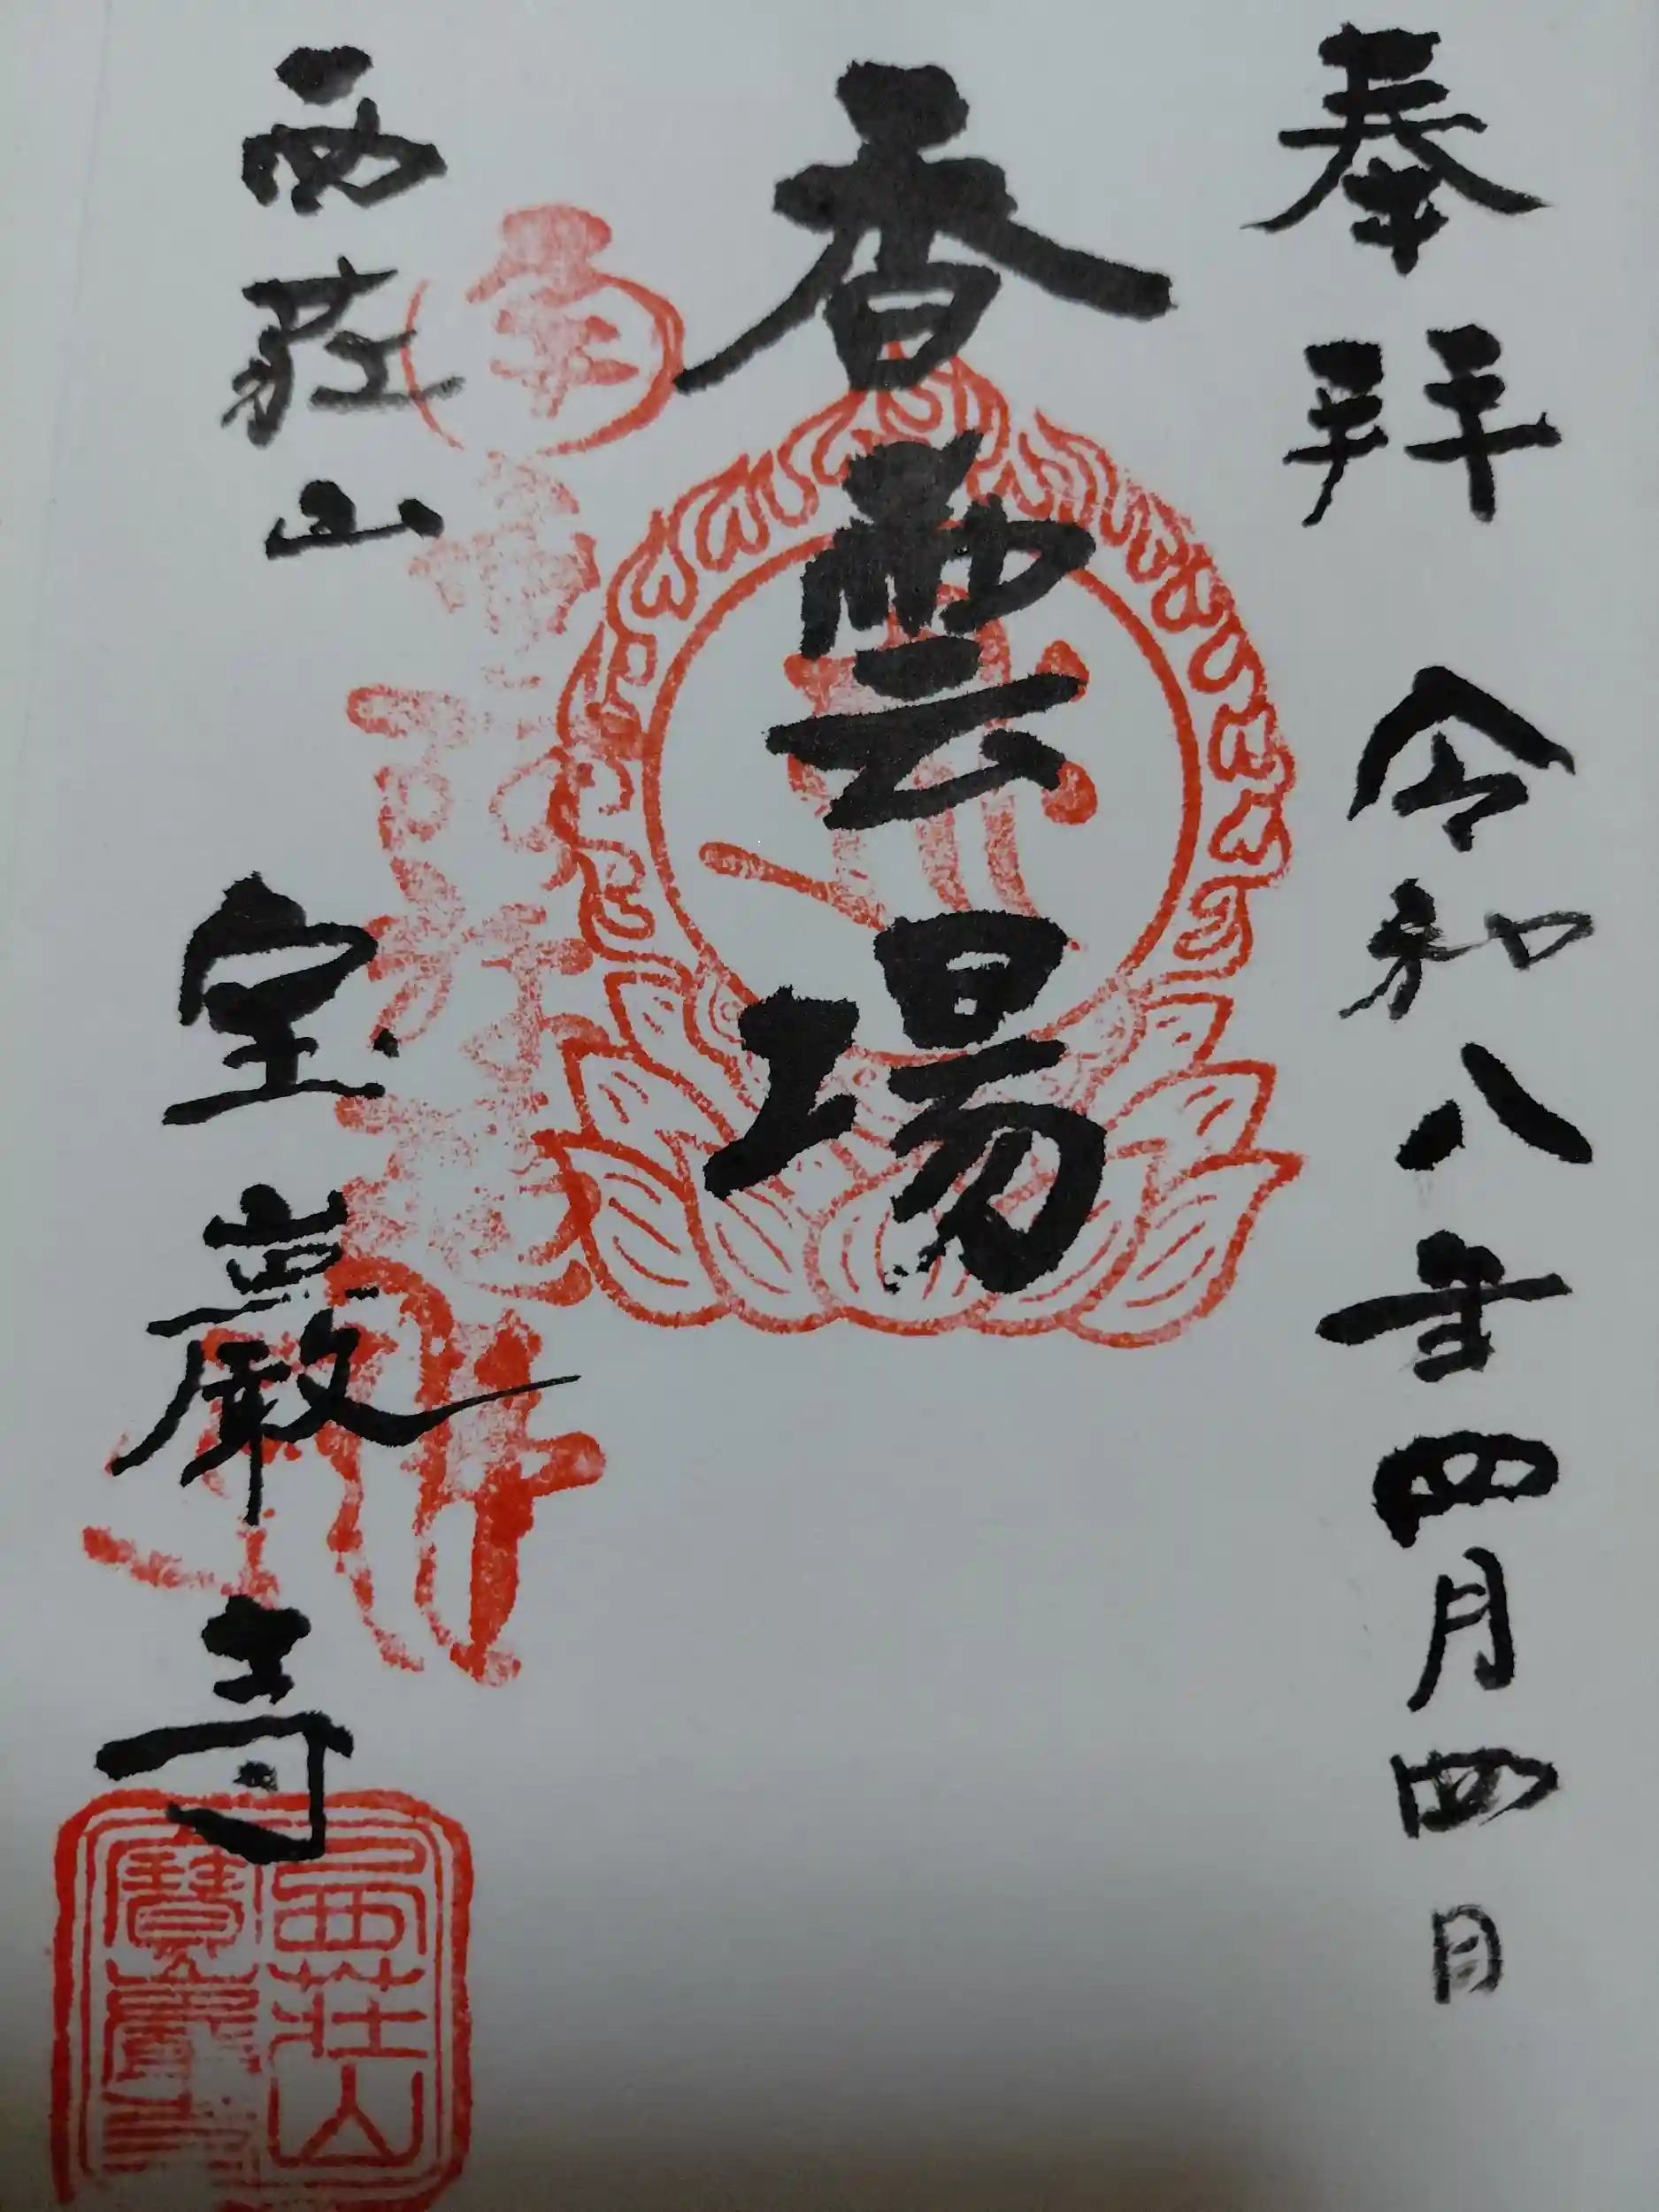 奉拝 令和八年四月四日
香雲場
西荘山 宝巖寺
西荘山
寶巖寺